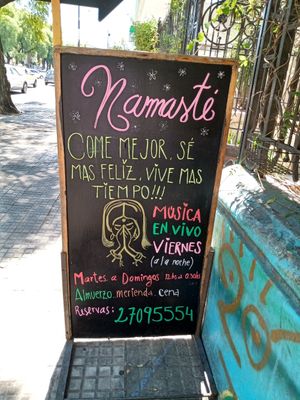 Namasté
COME MEJOR, SÉ
MAS FELIZ, VIVE MAS
TIEMPO!!!
MÚSICA
EN VIVO
VIERNES
(a la noche)
Martes a Domingos 12hs a 0:30hs
Almuerzo. merienda. cena
Reservas: 27095554